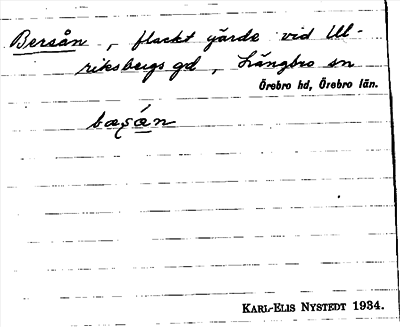 Bersån, flackt gärde vid Ul-
riksbergs gd, Längbro sn
Örebro hd, Örebro län.
bæʂán
KARL-ELIS NYSTEDT 1934.